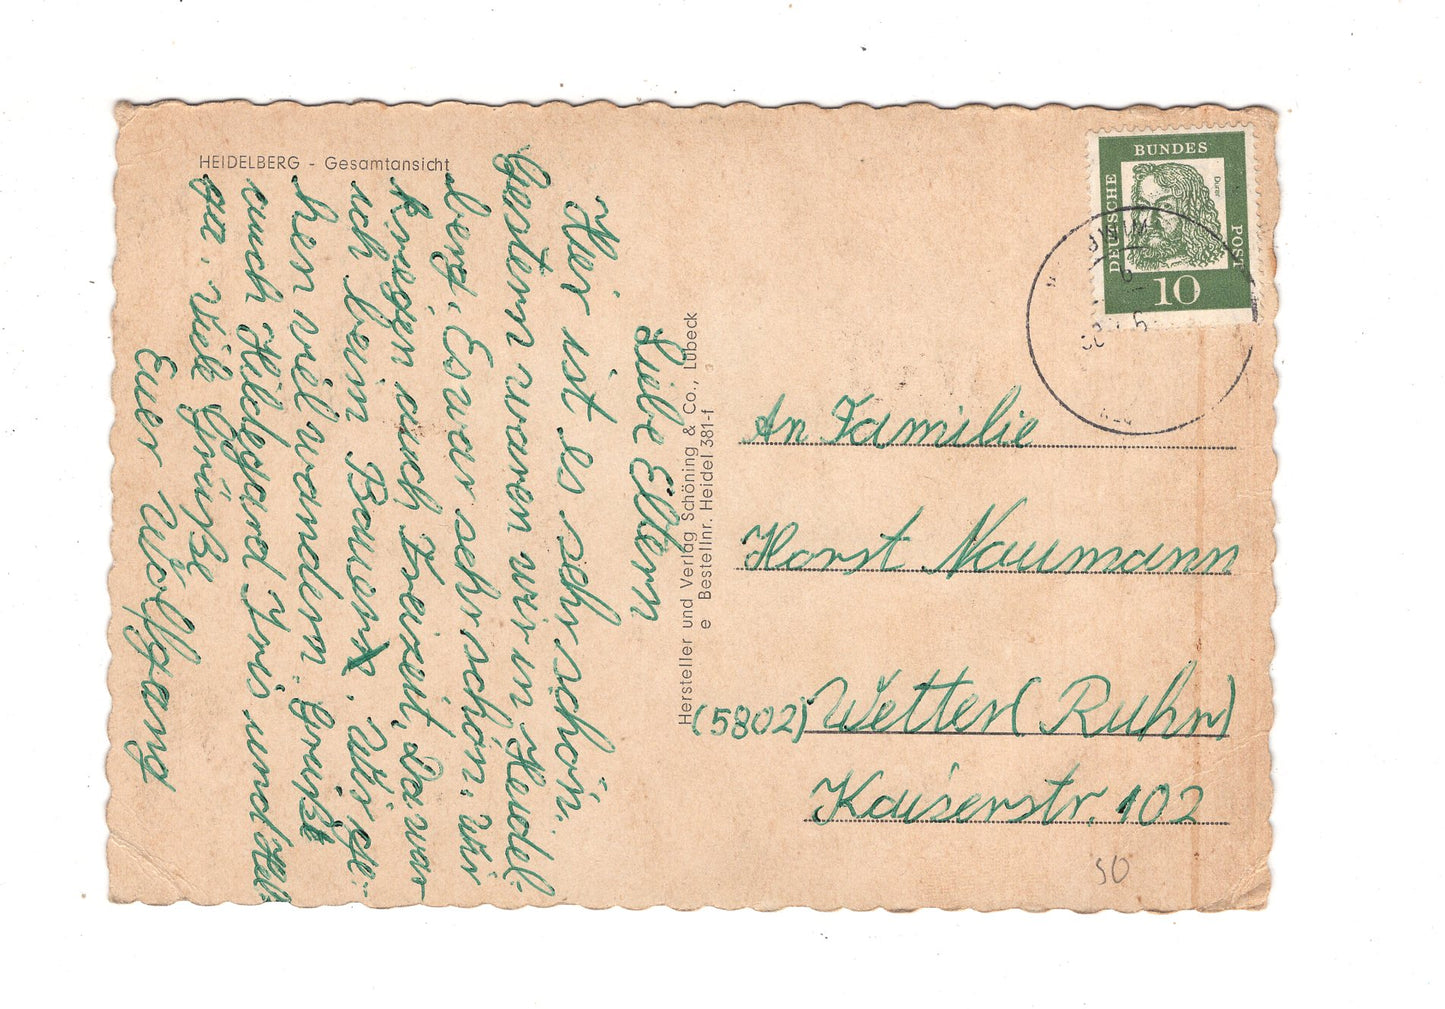 HEIDELBERG - Gesamtansicht
Liebe Eltern
Hier ist es sehr schön.
Gestern waren wir in Heidel-
berg. Es war sehr schön. Wir
kriegen auch Freizeit. Da war
ich beim Bauern. Wir ge-
hen viel wandern. Grüßt
auch Hildegard Iris und Hel
ga. Viele Grüße
Euer Wolfgang
Hersteller und Verlag Schöning & Co., Lübeck
e Bestellnr. Heidel 381-f
DEUTSCHE
BUNDES
POST
Dürer
10
An Familie
Horst Naumann
(5802) Wetter (Ruhr)
Kaiserstr. 102
50